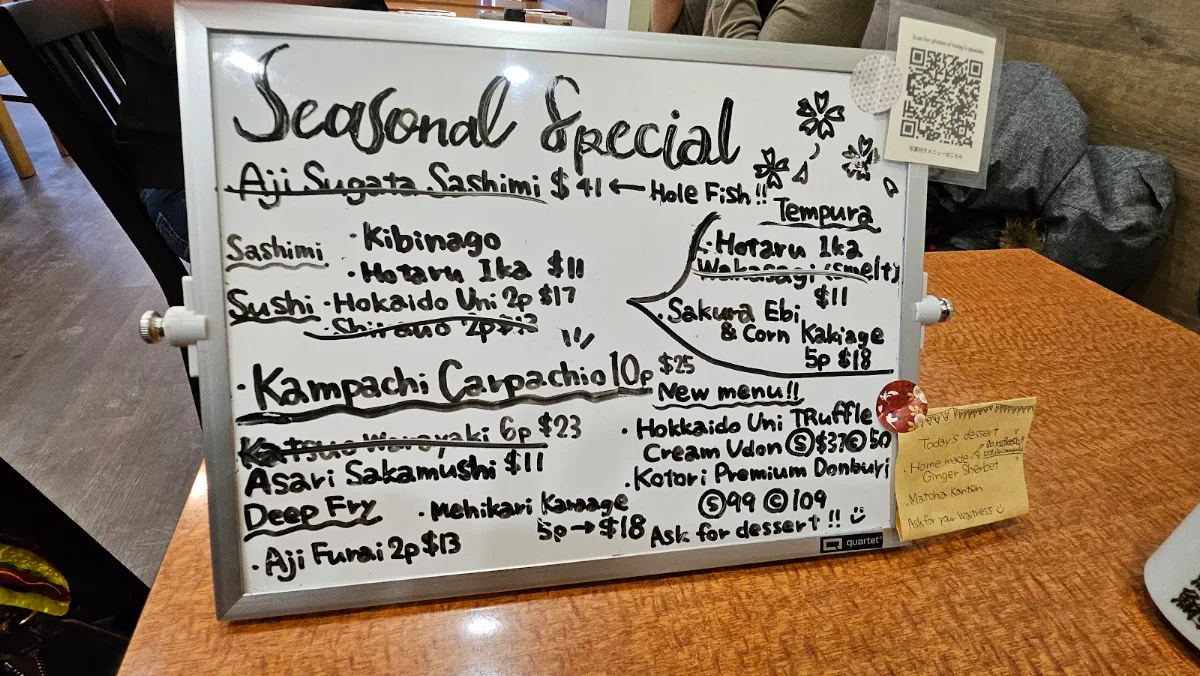 Seasonal Special
Aji Sugata Sashimi $41 ← Hole Fish!!
Sashimi
・Kibinago
・Hotaru Ika $11
Sushi ・Hokaido Uni 2p $17
・Shirauo 2p $12
・Kampachi Carpachio 10p $25
Katsuo Warayaki 6p $23
Asari Sakamushi $11
Deep Fry
・Mehikari Karaage
5p→$18
・Aji Furai 2p $13
Tempura
・Hotaru Ika
Wakasagi (Smelt)
$11
・Sakura Ebi
& Corn Kakiage
5p $18
New menu!!
・Hokkaido Uni TRuffle
Cream Udon Ⓢ$37Ⓒ50
・Kotori Premium Donburi
Ⓢ99 Ⓒ109
Ask for dessert!!
quartet
Scan for photos of today's specials
写真付きメニューはこちら
Today's dessert
・Home made
Ginger Sherbet
・Matcha Kanten
Ask for your Waitress